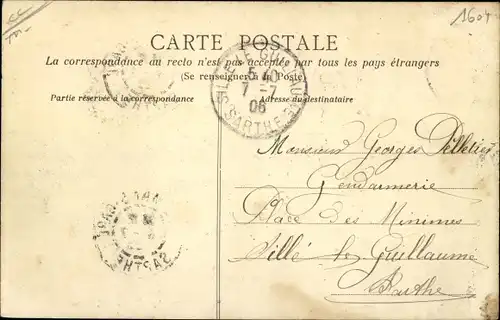 1604
CARTE POSTALE
La correspondance au recto n'est pas acceptée par tous les pays étrangers
(Se renseigner à la Poste)
Partie réservée à la correspondance
Adresse du destinataire
SILLÉ-LE-GUILLAUME
7-7
06
SARTHE
Monsieur Georges Pelletier
Gendarmerie
Place des Minimes
Sillé le Guillaume
Sarthe
SARTHE